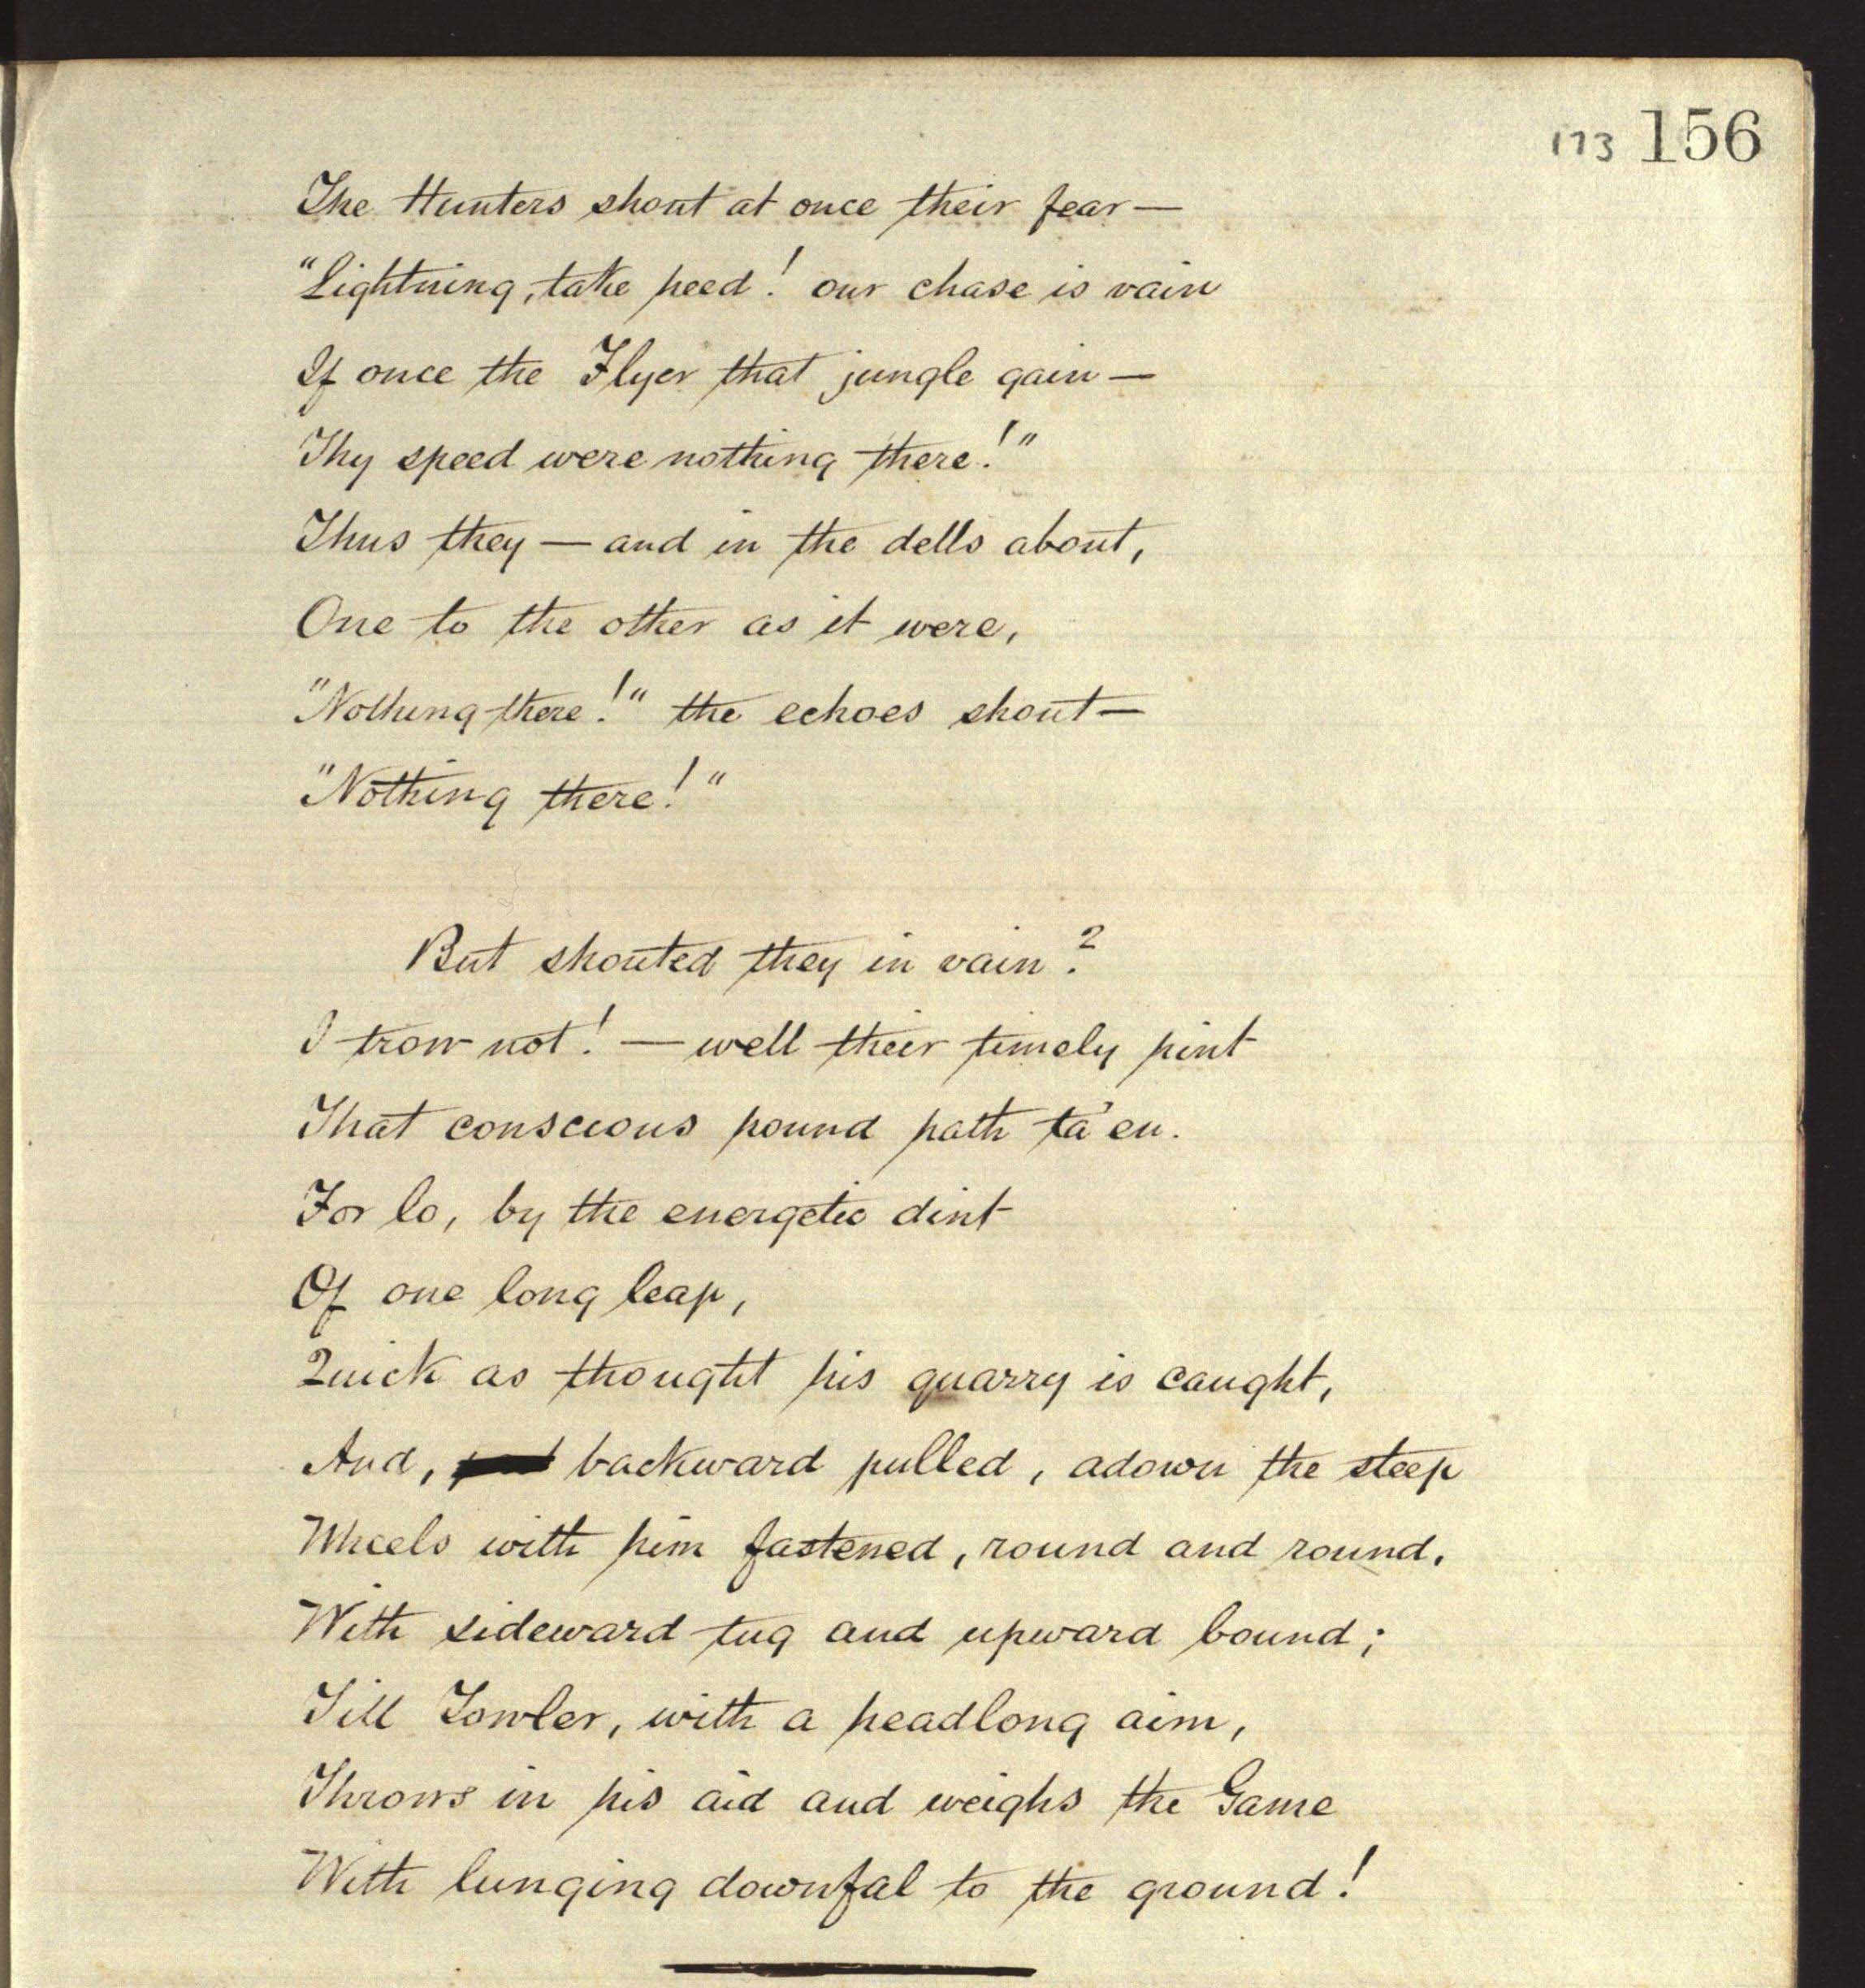 173 156
The Hunters shout at once their fear—
"Lightning, take heed! our chase is vain
If once the Flyer that jungle gain—
Thy speed were nothing there!"
Thus they — and in the dells about,
One to the other as it were,
"Nothing there!" the echoes shout—
"Nothing there!"
But shouted they in vain?
I trow not! — well their timely hint
That conscious hound hath ta'en.
For lo, by the energetic dint
Of one long leap,
Quick as thought his quarry is caught,
And, backward pulled, adown the steep
Wheels with him fastened, round and round,
With sideward tug and upward bound;
Till Towler, with a headlong aim,
Throws in his aid and weighs the Game
With lunging downfal to the ground!